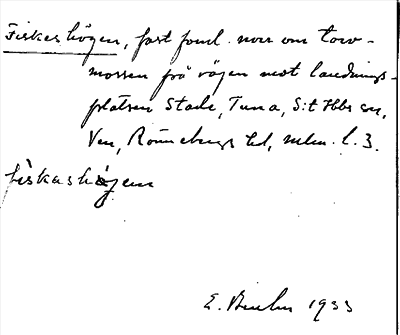 Fiskeshögen, fast forml. norr om Torv-
mossen på vägen mot landnings-
platsen Stade, Tuna, S:t Ibbs sn,
Ven, Rönnebergs hd, mlm. l. 3.
fiskashögen
E. 1933